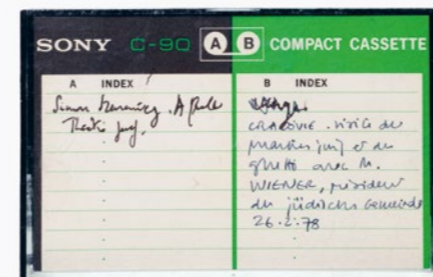 SONY C-90 A B COMPACT CASSETTE
A INDEX
Simon
Theatre juif.
B INDEX
CRACOVIE. visite du
quartier juif et du
ghetto avec M.
WIENER, président
der jüdischen Gemeinde
26.2.78